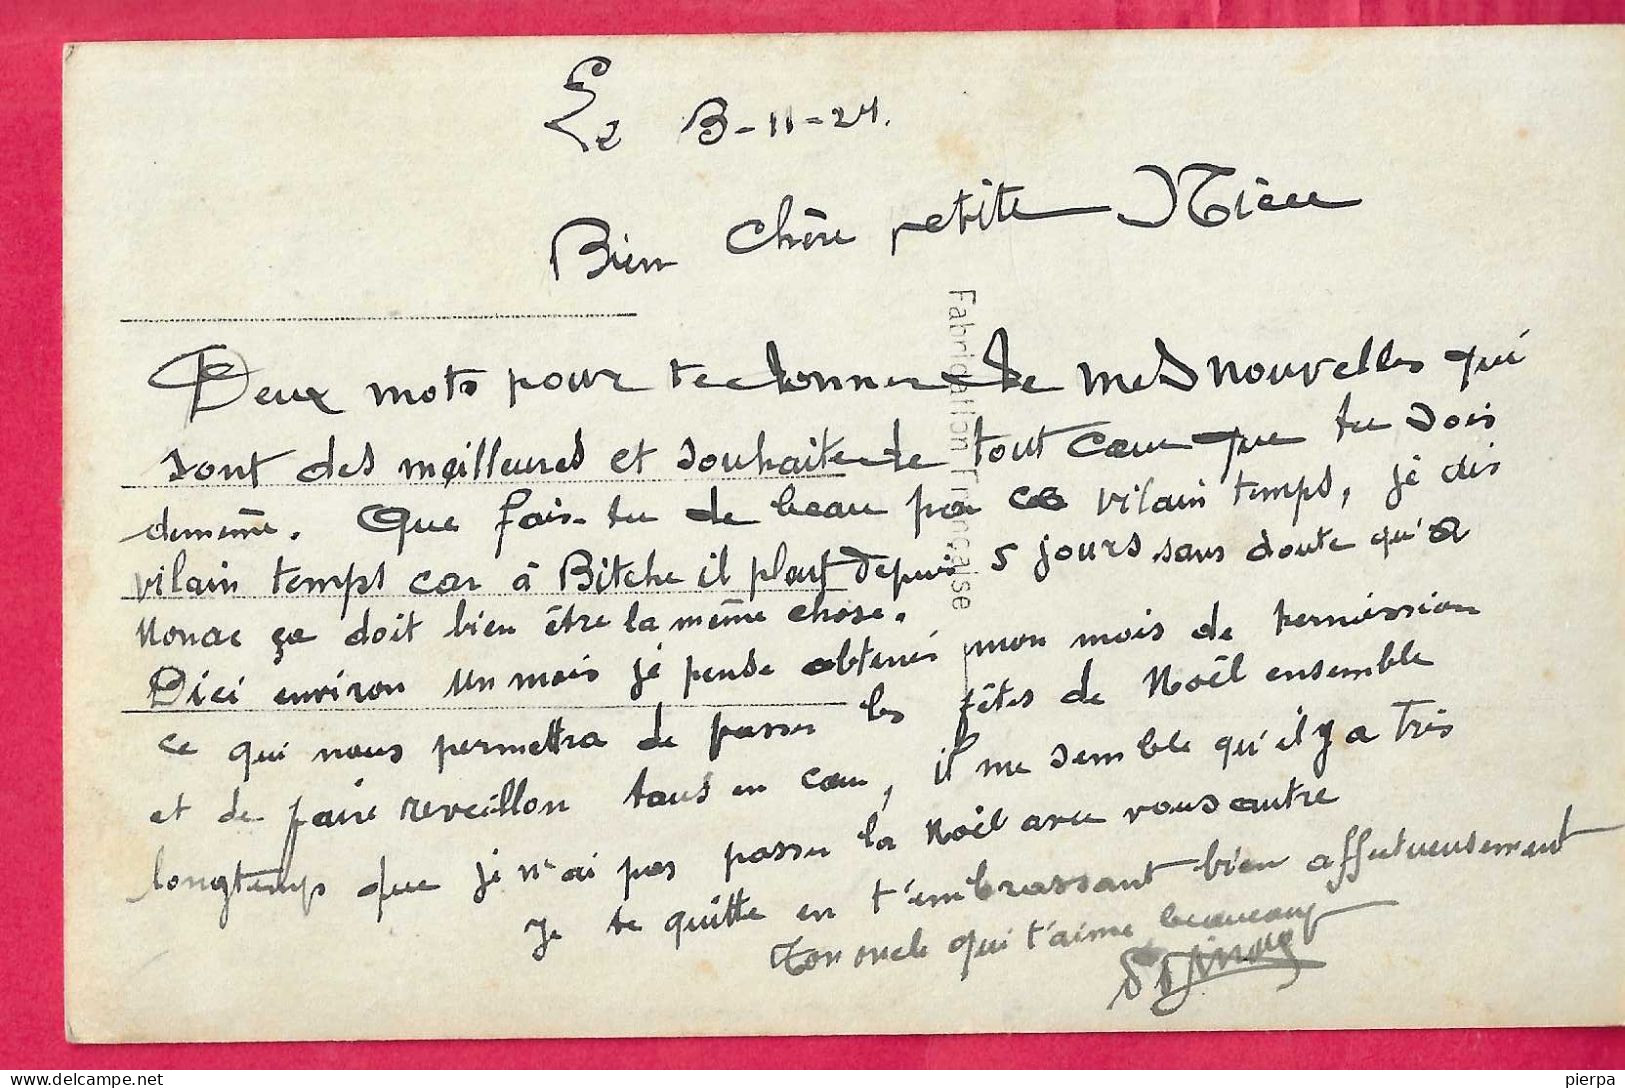 Le 3-11-24.
Bien chère petite Nièce
Fabrication Française
Deux mots pour te donner de mes nouvelles qui
sont des meilleures et souhaite de tout cœur que tu sois
de même. Que fais-tu de beau par ce vilain temps, je dis
vilain temps car à Bitche il pleut depuis 5 jours sans doute qu'à
Nonac ça doit bien être la même chose.
D'ici environ un mois je pense obtenir mon mois de permission
ce qui nous permettra de passer les fêtes de Noël ensemble
et de faire reveillon tous en cœur, il me semble qu'il y a très
longtemps que je n'ai pas passer la Noël avec vous autre
Je te quitte en t'embrassant bien affectueusement
Ton oncle qui t'aime beaucoup